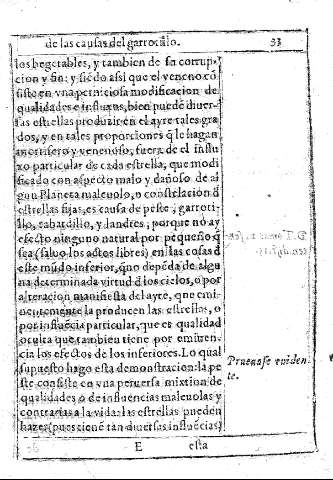 de las causas del garrotillo. 33
los begetables, y tambien de su corrup-
cion y fin: y siēdo assi que el veneno cō
siste en vna perniciosa modificacion de
qualidades e influxos, bien puedē diuer-
sas estrellas produzir en el ayre tales gra
dos, y en tales proporciones q̄ le hagan
mortifero y venenoso, fuera de el influ
xo particular de cada estrella, que modi
ficado con aspecto malo y dañoso de al
gun Planeta maleuolo, o cōstelacion d̄
estrellas fijas, es causa de peste, garroti-
llo, tabardillo, y landres, porque no ay
efecto ninguno natural por pequeño q̄
sea (saluo los actos libres) en las cosas d̄
este mūdo inferior, q̄ no depēda de algu
na determinada virtud d̄ los cielos, o por
alteracion manifiesta del ayre, que emi-
nentemente la producen las estrellas, o
por influēcia particular, que es qualidad
oculta que tambien tiene por eminen-
cia los efectos de los inferiores. Lo qual
supuesto hago esta demonstracion: la pe
ste consiste en vna peruersa mixtion de
qualidades o de influencias maleuolas y
contrarias a la vida: las estrellas pueden
hazer (pues tienē tan diuersas influēcias)
Prueuase euiden
te.
E esta